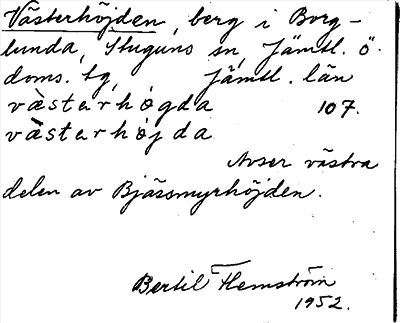 Västerhöjden, berg i Borg-
lunda, Stuguns sn, Jämtl. ö.
doms. tg, Jämtl. län
västerhögda 107.
västerhöjda
Avser västra
delen av Bjässmyrhöjden.
Bertil Hemström
1952.